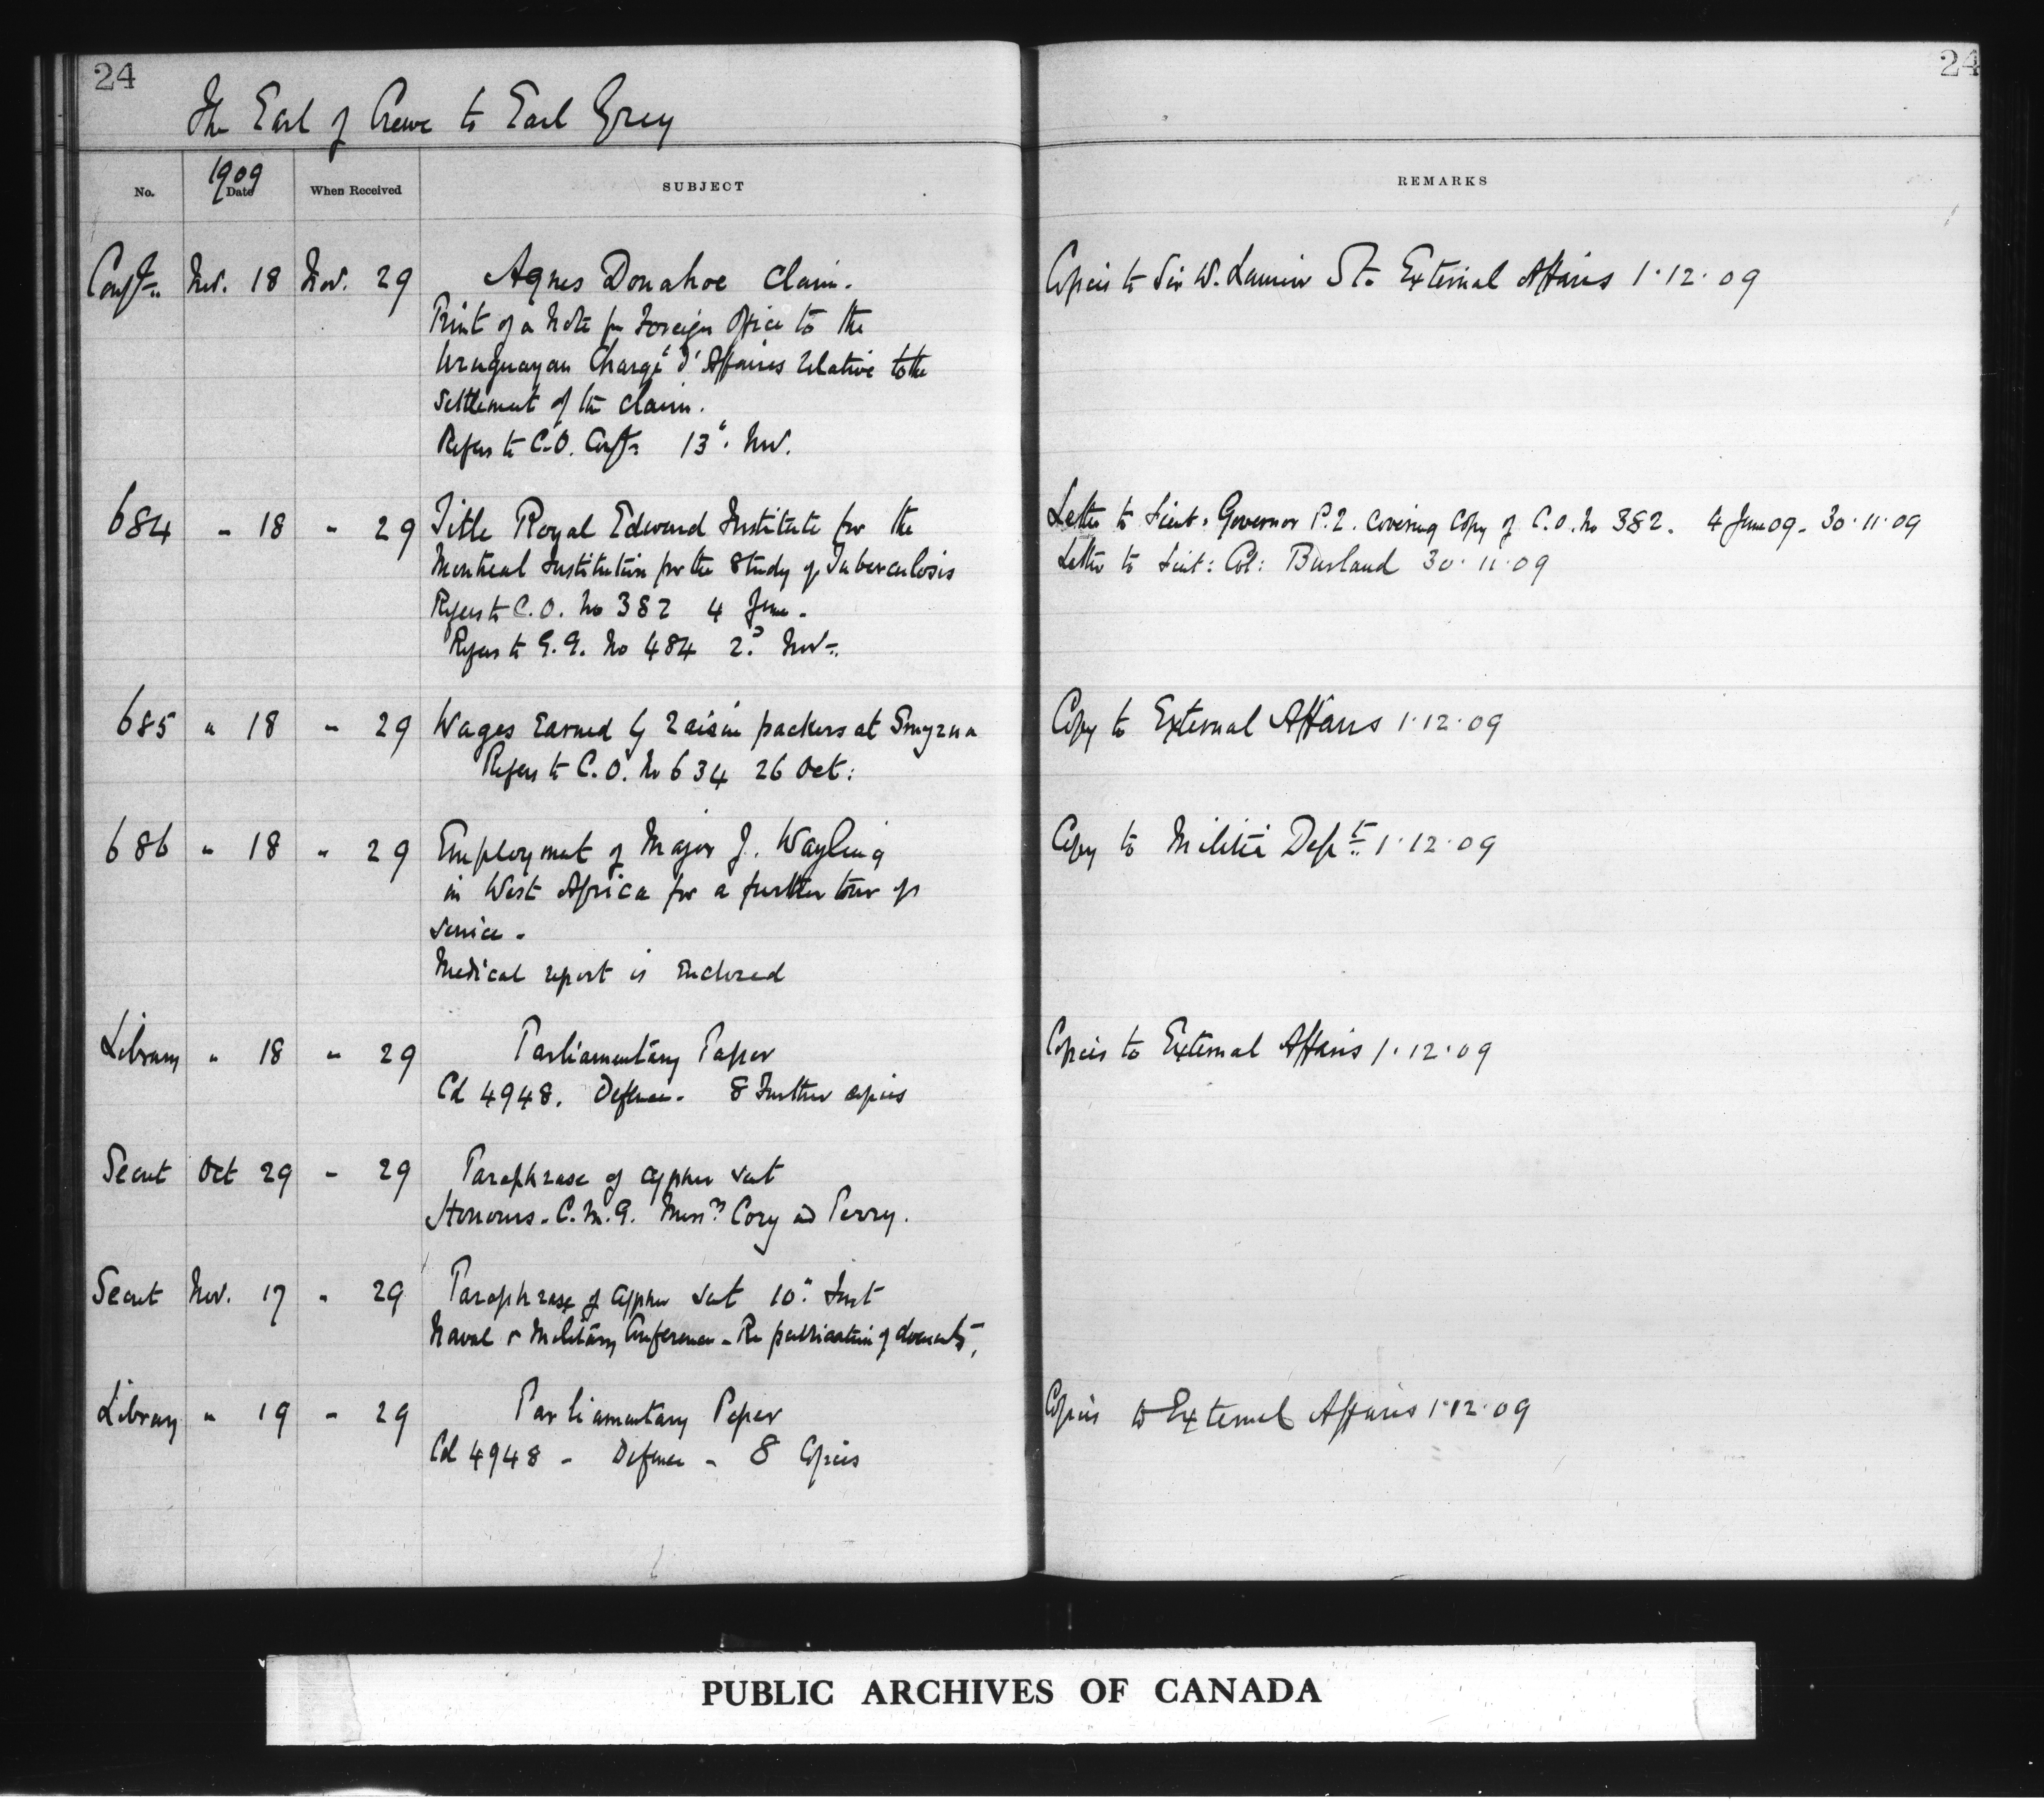 24
24
The Earl of Crewe to Earl Grey
1909
No. Date When Received SUBJECT REMARKS
Conf. Nov. 18 Nov. 29 Agnes Donahoe Claim. Copies to Sir W. Laurier External Affairs 1·12·09
Print of a Note fm Foreign Office to the
Uruguayan Chargé d'Affaires relative to the
settlement of the claim.
Refers to C.O. Conf. 13". Nov.
684 " 18 " 29 Title Royal Edward Institute for the Letter to Lieut: Governor P.2. covering Copy of C.O. No 382. 4 June 09. 30·11·09
Montreal Institution for the Study of Tuberculosis Letter to Lieut: Col: Burland 30·11·09
Refers to C.O. No 382 4 June.
Refers to G.G. No 484 2d Nov.
685 " 18 " 29 Wages Earned by raisin packers at Smyrna Copy to External Affairs 1·12·09
Refers to C.O. No 634 26 Oct:
686 " 18 " 29 Employment of Major J. Wayling Copy to Militia Dept 1·12·09
in West Africa for a further tour of
service.
Medical report is enclosed
Library " 18 " 29 Parliamentary Paper Copies to External Affairs 1·12·09
Cd 4948. Defence. 8 Further copies
Secret Oct 29 " 29 Paraphrase of cypher sent
Honours. C.M.G. Messrs Cory and Perry.
Secret Nov. 17 " 29 Paraphrase of cypher sent 10" Inst
Naval & Military Conference - Re publication of documents.
Library " 19 " 29 Parliamentary Paper Copies to External Affairs 1·12·09
Cd 4948 - Defence - 8 Copies
PUBLIC ARCHIVES OF CANADA